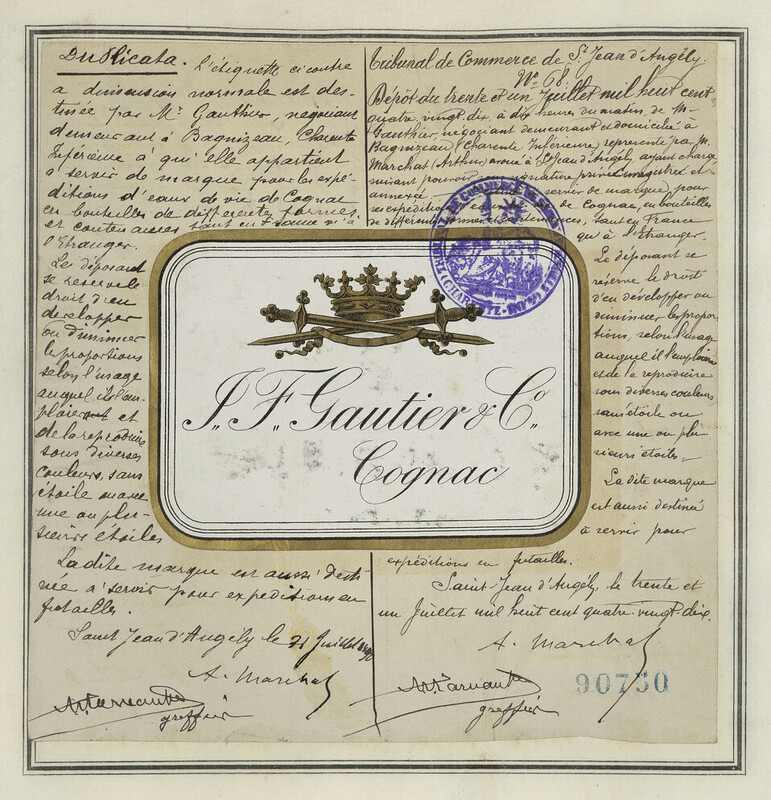 Duplicata. L'étiquette ci contre
a dimension normale est des-
tinée par Mr. Gauthier, négociant
demeurant à Bagnizeau, Charente
Inférieure à qui elle appartient
a servir de marque pour les expé-
ditions d'eaux de vie de Cognac
en bouteilles de differentes formes
et contenances tant en France qu'a
l'Etranger.
Le déposant
se reserve le
droit d'en
developper
ou diminuer
les proportions
selon l'usage
auquel il l'em-
ploiera et
de la reproduire
sous diverses
couleurs, sans
étoile ou avec
une ou plu-
sieurs étoiles
La dite marque est aussi desti
née a servir pour expeditions en
futailles.
Saint Jean d'Angély le 31 Juillet 1890
A. Marchal
greffier
Tribunal de Commerce de St Jean d'Angély.
No 68.
Dépôt du trente et un Juillet mil huit cent
quatre vingt dix, à dix heures du matin, de M.
Gauthier, négociant demeurant et domicilié à
Bagnizeau (Charente Inférieure) représenté par M.
Marchal (Arthur) avoué à St Jean d'Angély, ayant charge
suivant pouvoir sous signature privée enregistré et
annexé. servir de marque, pour
ses expéditions d'eaux de vie de Cognac, en bouteilles
de différentes formes et contenances, tant en France
qu'à l'Etranger.
Le déposant se
réserve le droit
d'en développer ou
diminuer les propor
tions, selon l'usage
auquel il l'emploiera
et de la reproduire
sous diverses couleurs
sans étoile ou
avec une ou plu
sieurs étoiles
La dite marque
est aussi destinée
à servir pour
expéditions en futailles.
Saint Jean d'Angély, le trente et
un Juillet mil huit cent quatre vingt dix.
A. Marchal
greffier
90730
J. F. Gautier & Co.
Cognac